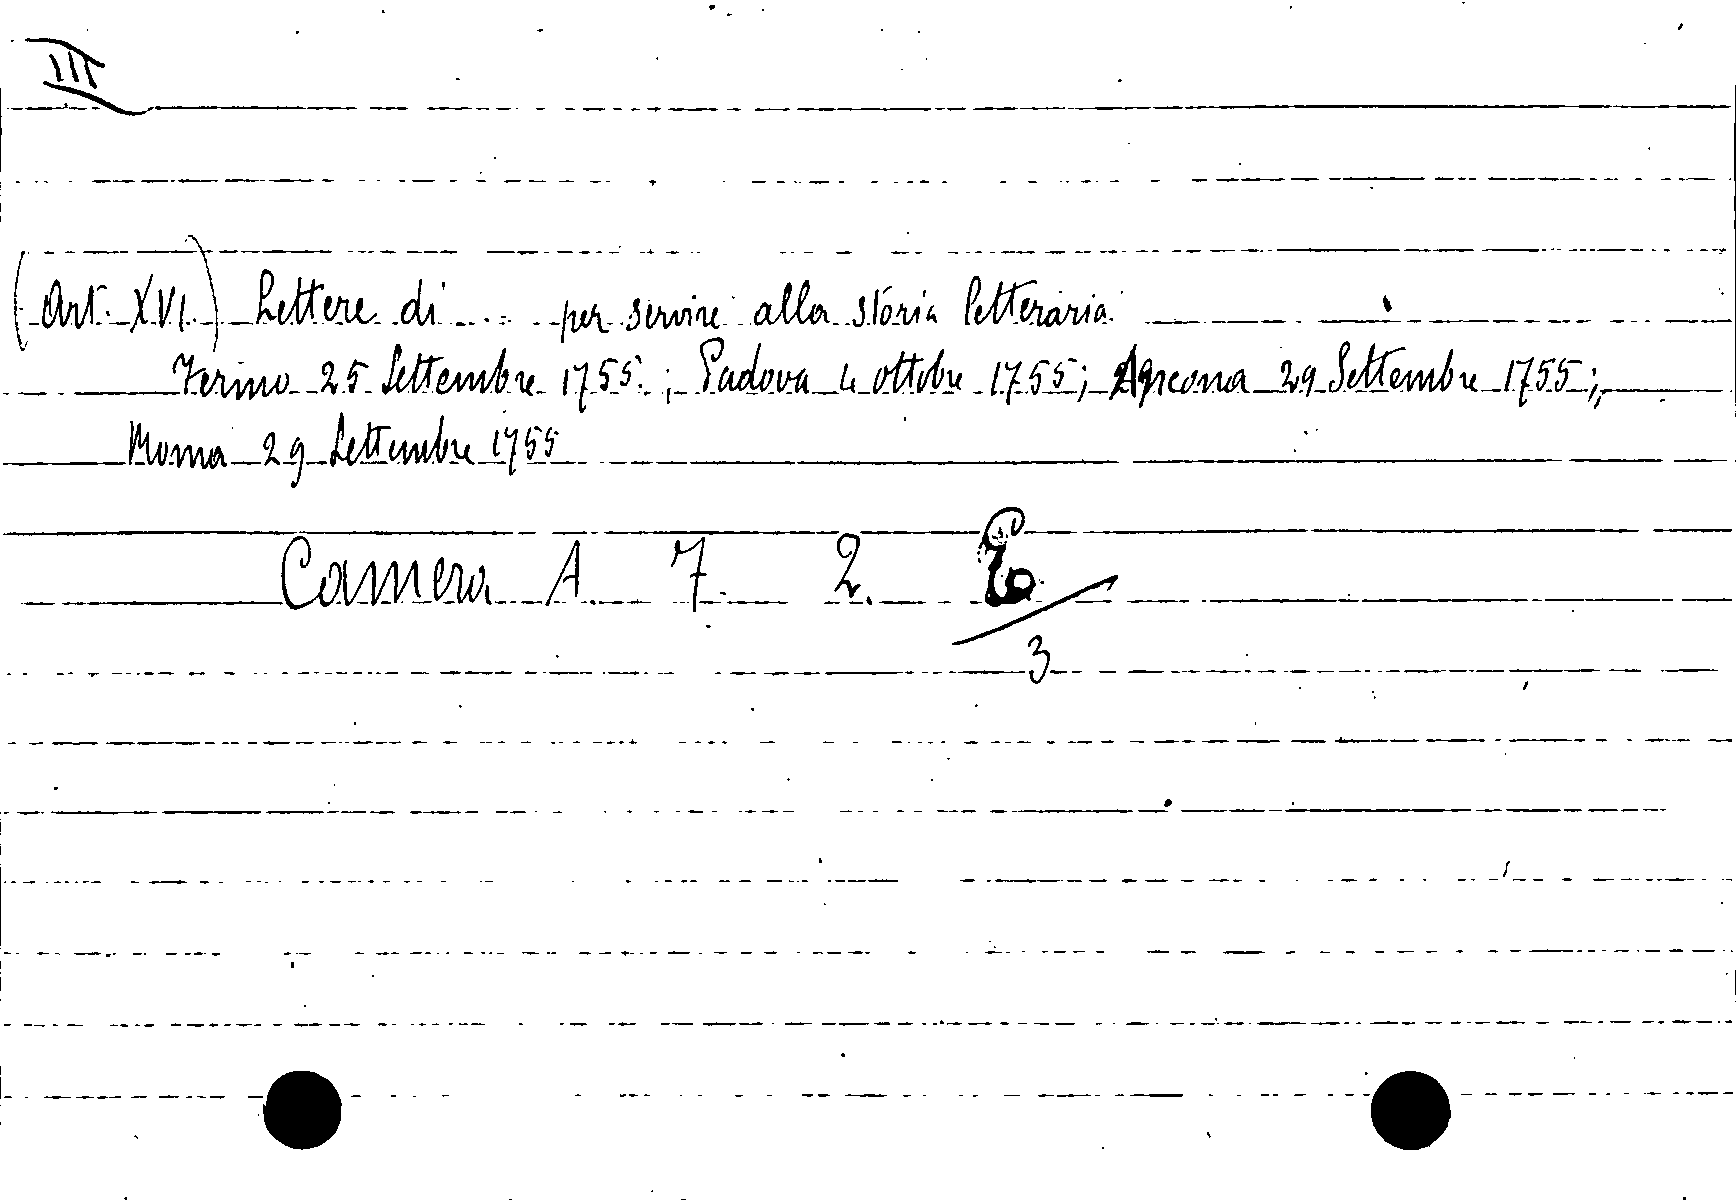 III
(Art. XVI.) Lettere di .... per servire alla storia letteraria.
Fermo 25 Settembre 1755.; Padova 4 ottobre 1755; Ancona 29 Settembre 1755;
Roma 29 Settembre 1755
Camera A. 7. 2.
3